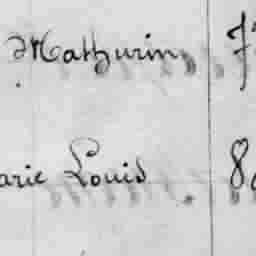 Mathurin
arie Louis 8